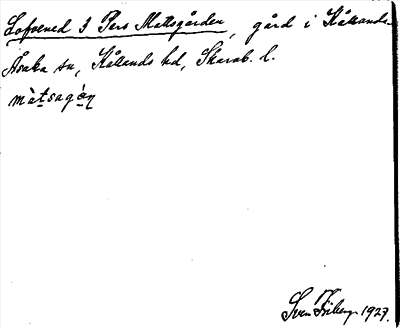 Lofvened 3 Pers Mattsgården, gård i Kållands-
Åsaka sn, Kållands hd, Skarab. l.
màtsagán
Sven Friberg 1927.